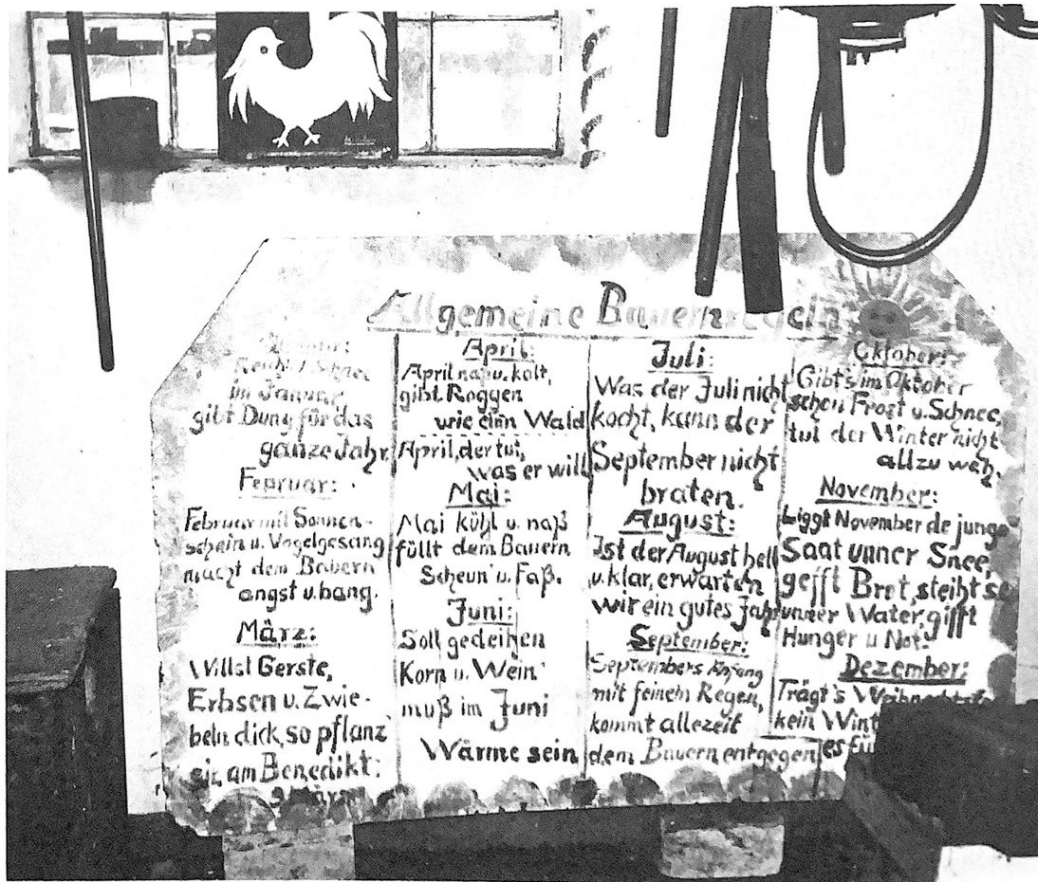 Allgemeine Bauernregeln
Januar:
Reichl. Schnee
im Januar
gibt Dung für das
ganze Jahr.
Februar:
Februar mit Sonnen-
schein u. Vogelgesang
macht dem Bauern
angst u. bang.
März:
Willst Gerste,
Erbsen u. Zwie-
beln dick, so pflanz
sie am Benedikt:
April:
April naß u. kalt,
gibt Roggen
wie ein Wald
April, der tut,
was er will
Mai:
Mai kühl u. naß
füllt dem Bauern
Scheun' u. Faß.
Juni:
Soll gedeihen
Korn u. Wein
muß im Juni
Wärme sein
Juli:
Was der Juli nicht
kocht, kann der
September nicht
braten.
August:
Ist der August hell
u. klar, erwarten
wir ein gutes Jahr
September:
Septembers Anfang
mit feinem Regen,
kommt allezeit
dem Bauern entgegen
Oktober:
Gibt's im Oktober
schon Frost u. Schnee,
tut der Winter nicht
allzu weh.
November:
Liggt November de junge
Saat unner Snee,
gefft Brot, steiht se
unner Water, gifft
Hunger u Not.
Dezember:
Trägt's
kein
es